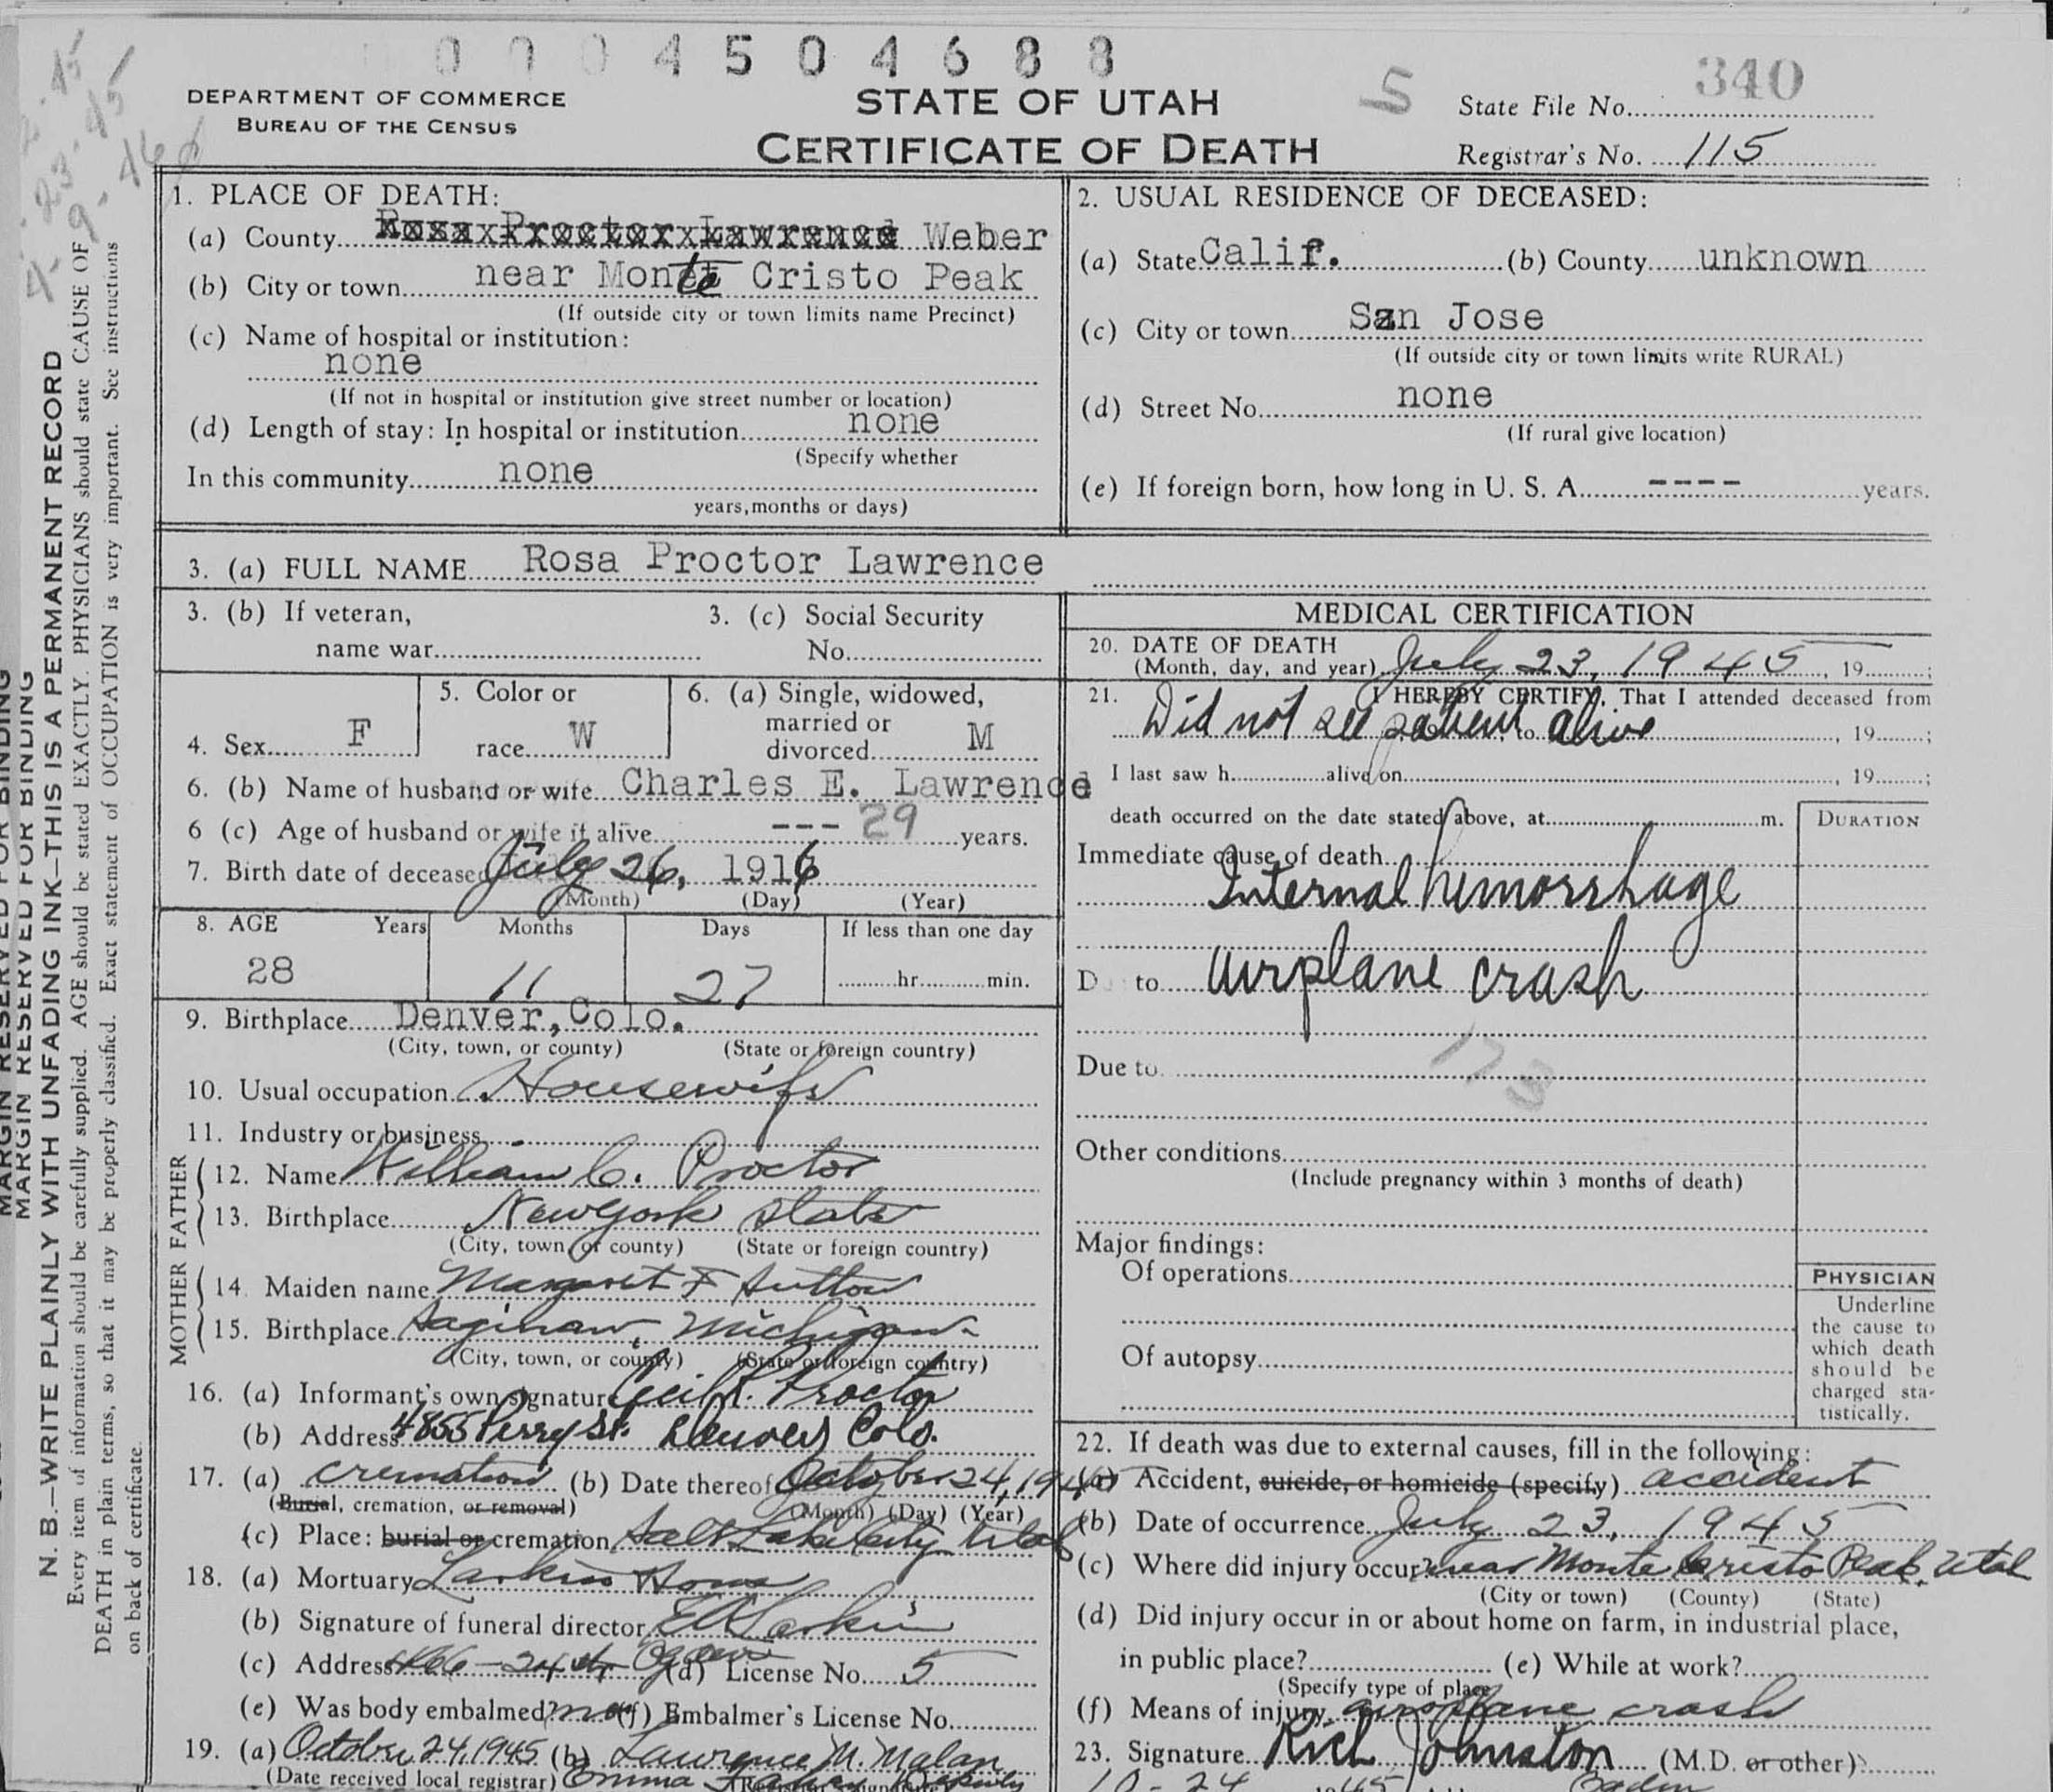 0 0 0 4 5 0 4 6 8 8
DEPARTMENT OF COMMERCE
BUREAU OF THE CENSUS
STATE OF UTAH
CERTIFICATE OF DEATH
5
State File No. 340
Registrar's No. 115
1. PLACE OF DEATH:
(a) County Rosa Proctor Lawrence Weber
(b) City or town near Monte Cristo Peak
(If outside city or town limits name Precinct)
(c) Name of hospital or institution:
none
(If not in hospital or institution give street number or location)
(d) Length of stay: In hospital or institution none
(Specify whether
In this community none
years, months or days)
2. USUAL RESIDENCE OF DECEASED:
(a) State Calif. (b) County unknown
(c) City or town San Jose
(If outside city or town limits write RURAL)
(d) Street No. none
(If rural give location)
(e) If foreign born, how long in U. S. A. ---- years.
3. (a) FULL NAME Rosa Proctor Lawrence
3. (b) If veteran,
name war
3. (c) Social Security
No.
4. Sex F
5. Color or
race W
6. (a) Single, widowed,
married or
divorced M
6. (b) Name of husband or wife Charles E. Lawrence
6 (c) Age of husband or wife if alive --- 29 years.
7. Birth date of deceased July 26, 1916
(Month) (Day) (Year)
8. AGE Years Months Days If less than one day
28 11 27 hr. min.
9. Birthplace Denver, Colo.
(City, town, or county) (State or foreign country)
10. Usual occupation Housewife
11. Industry or business -
FATHER
12. Name William C. Proctor
13. Birthplace New York State
(City, town, or county) (State or foreign country)
MOTHER
14. Maiden name Margaret F Sutton
15. Birthplace Saginaw, Michigan
(City, town, or county) (State or foreign country)
16. (a) Informant's own signature Cecil R. Proctor
(b) Address 4855 Perry St. Denver Colo.
17. (a) cremation (b) Date thereof October 24, 1945
(Burial, cremation, or removal) (Month) (Day) (Year)
(c) Place: burial or cremation Salt Lake City Utah
18. (a) Mortuary Larkins Home
(b) Signature of funeral director Larkin
(c) Address 24th Ogden (d) License No. 5
(e) Was body embalmed? no (f) Embalmer's License No.
19. (a) October 24, 1945 (b) Lawrence M. Malan
(Date received local registrar) Emma
MEDICAL CERTIFICATION
20. DATE OF DEATH
(Month, day, and year) July 23, 1945, 19 ;
21. I HEREBY CERTIFY, That I attended deceased from
Did not see patient to alive , 19 ;
I last saw h alive on , 19 ;
death occurred on the date stated above, at m.
DURATION
Immediate cause of death
Internal hemorrhage
D to airplane crash
Due to
173
Other conditions
(Include pregnancy within 3 months of death)
Major findings:
Of operations
Of autopsy
PHYSICIAN
Underline
the cause to
which death
should be
charged sta-
tistically.
22. If death was due to external causes, fill in the following:
(a) Accident, suicide, or homicide (specify) accident
(b) Date of occurrence July 23, 1945
(c) Where did injury occur? near Monte Cristo Peak, Utah
(City or town) (County) (State)
(d) Did injury occur in or about home on farm, in industrial place,
in public place? (e) While at work?
(Specify type of place)
(f) Means of injury airoplane crash
23. Signature Rich Johnston (M.D. or other)
10-24 1945 Ogden
MARGIN RESERVED FOR BINDING
MARGIN RESERVED FOR BINDING
N. B.—WRITE PLAINLY WITH UNFADING INK—THIS IS A PERMANENT RECORD
Every item of information should be carefully supplied. AGE should be stated EXACTLY. PHYSICIANS should state CAUSE OF
DEATH in plain terms, so that it may be properly classified. Exact statement of OCCUPATION is very important. See instructions
on back of certificate.